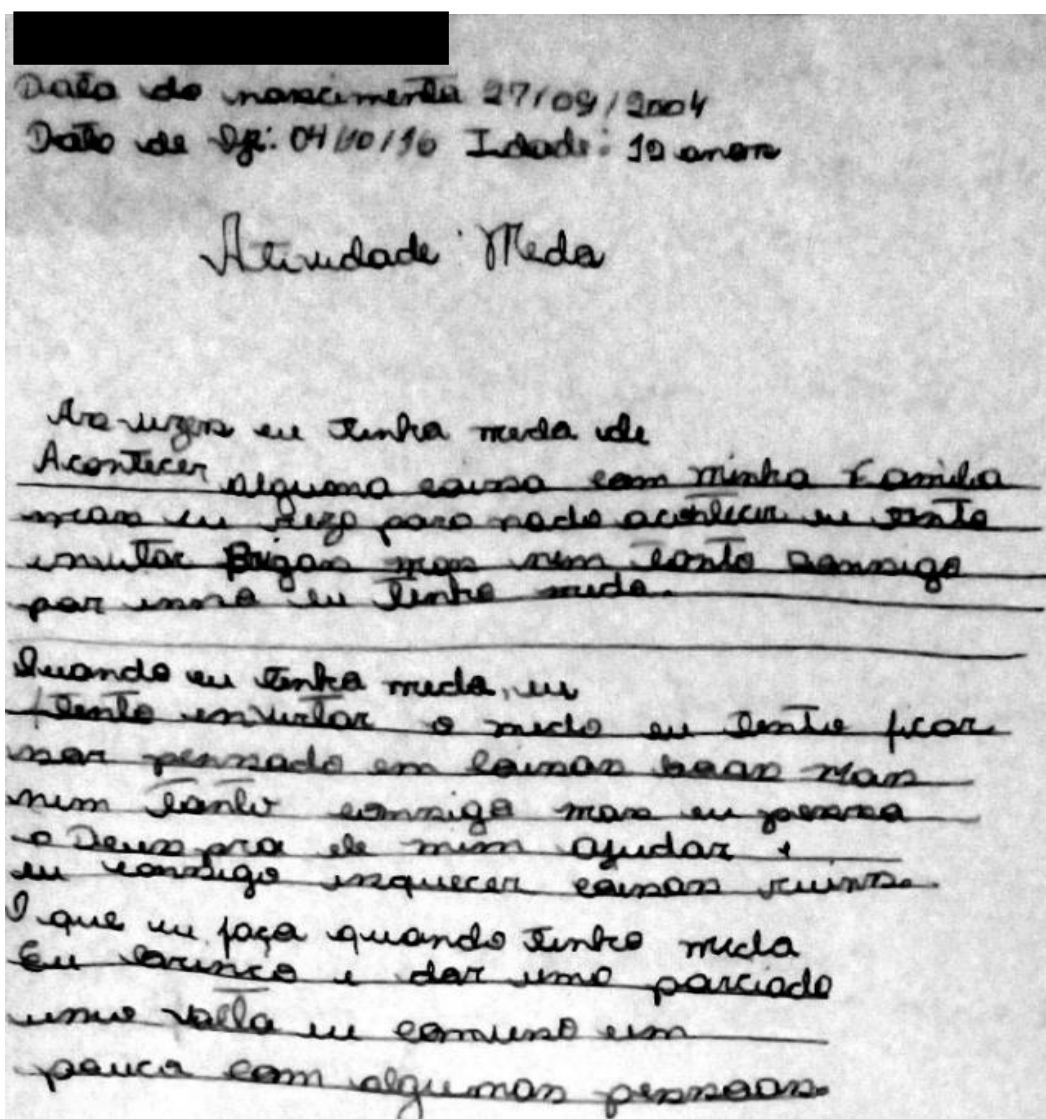 Data de nascimento 27/09/2004
Data de : 04/10/16 Idade: 12 anos
Atividade Medo
As vezes eu tenho medo de
Acontecer alguma coisa com minha Familia
mas eu rezo para nada acontecer eu tento
invitar Brigas mas nem tanto consigo
por isso eu tenho medo.
Quando eu tenho medo, eu
tento invitar o medo eu tento ficar
só pensado em coisas boas mas
nem tanto consigo mas eu pesso
a Deus pra ele mim ajudar e
eu consigo isquecer coisas ruins.
O que eu faço quando tenho medo
Eu brinco e dar uma parciada
uma volta eu comverso um
pouco com algumas pessoas.